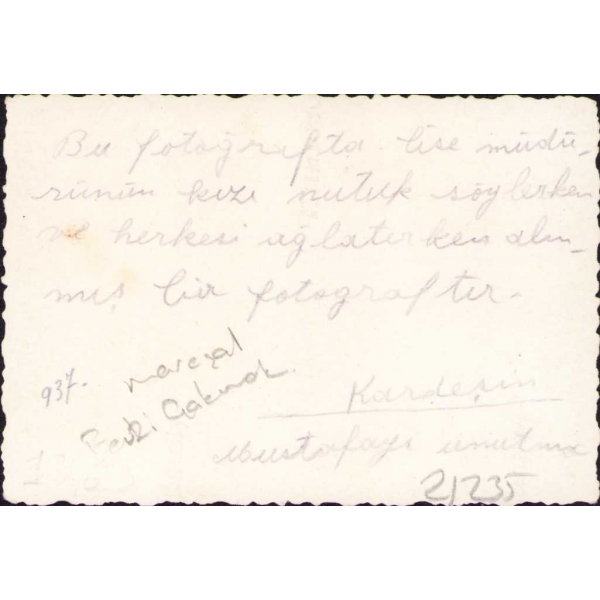 Bu fotoğrafta lise müdü-
rünün kızı nutuk söylerken
ve herkesi ağlatırken alın-
mış bir fotograftır.
937.
mareşal
Fevzi Çakmak
Kardeşin
Mustafayı unutma
21235